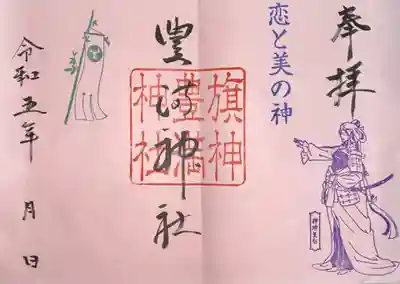 奉拝
恋と美の神
旗神
豊満
神社
豊満神社
令和五年 月 日